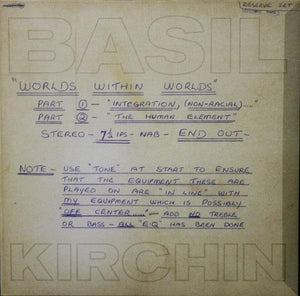 RESERVE SET
BASIL
"WORLDS WITHIN WORLDS"
PART ① - "INTEGRATION, (NON-RACIAL)...."
PART ② - "THE HUMAN ELEMENT"
STEREO - 7½ IPS - NAB - END OUT -
NOTE - USE "TONE" AT START TO ENSURE
THAT THE EQUIPMENT THESE ARE
PLAYED ON ARE "IN LINE" WITH
MY EQUIPMENT WHICH IS POSSIBLY
"OFF CENTER....." - ADD NO TREBLE
OR BASS - ALL "E-Q" HAS BEEN DONE
KIRCHIN